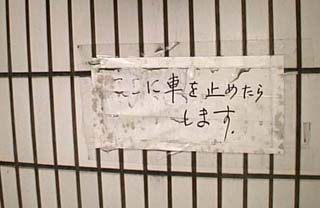 ここに車を止めたら
します.